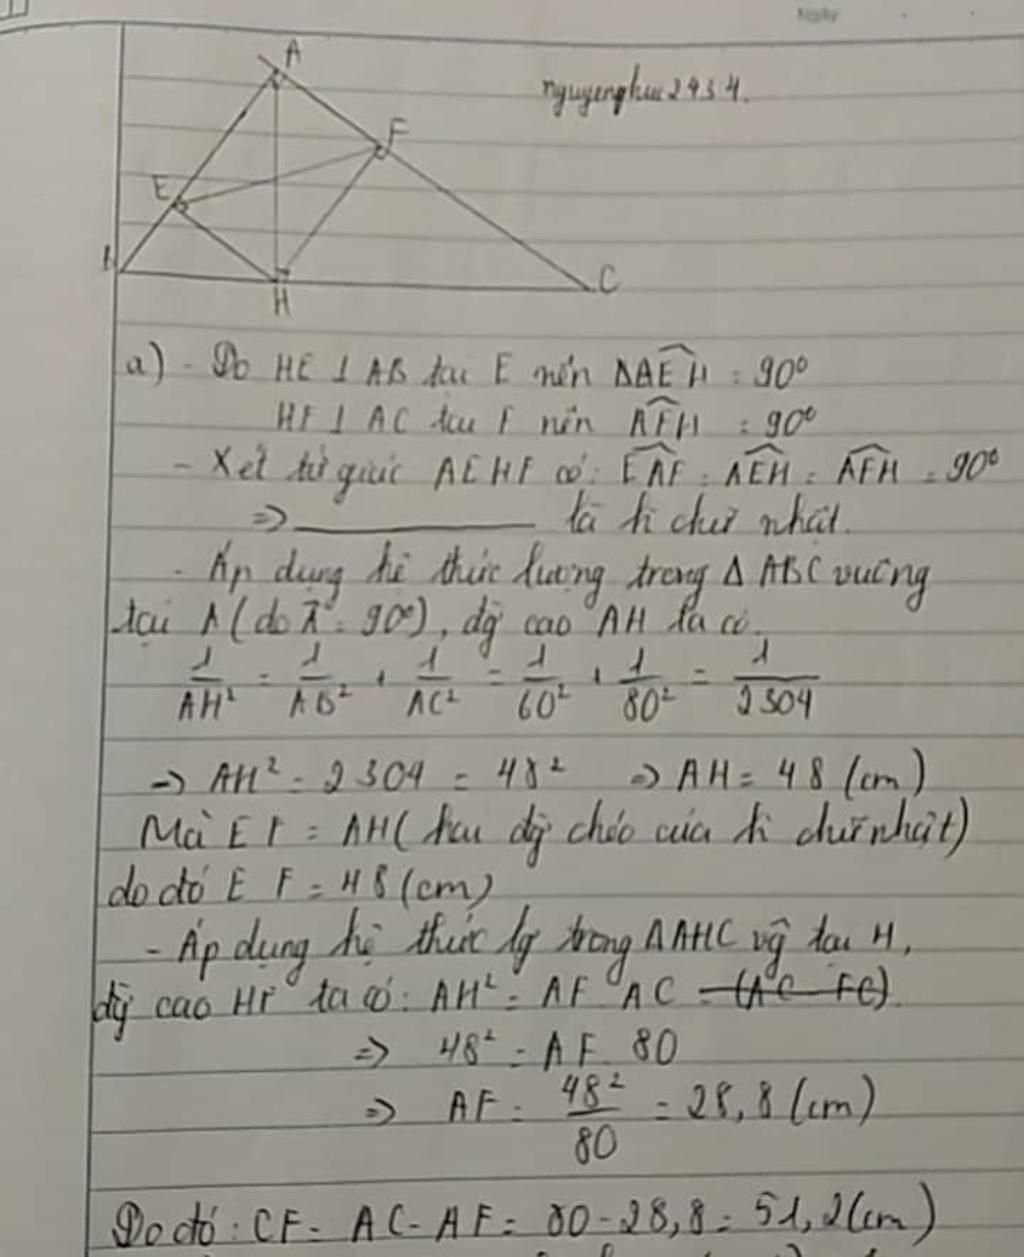 Ngày
nguyenphuc2434.
A
F
E
B
H
C
a) - Do HE ⊥ AB tại E nên ΔAEH = 90°
HF ⊥ AC tại F nên AFH = 90°
- Xét tứ giác AEHF có: EAF = AEH = AFH = 90°
=> ________ là h chữ nhật.
- Áp dụng hệ thức lượng trong Δ ABC vuông
tại A (do A = 90°), đg cao AH ta có.
1/AH² = 1/AB² + 1/AC² = 1/60² + 1/80² = 1/2304
=> AH² = 2304 = 48² => AH = 48 (cm)
Mà EF = AH (hai đg chéo của h chữ nhật)
do đó EF = 48 (cm)
- Áp dụng hệ thức lg trong ΔAHC vg tại H,
đg cao HF ta có: AH² = AF AC = (AC FC)
=> 48² = AF. 80
=> AF = 48²/80 = 28,8 (cm)
Do đó: CF = AC - AF = 80 - 28,8 = 51,2 (cm)